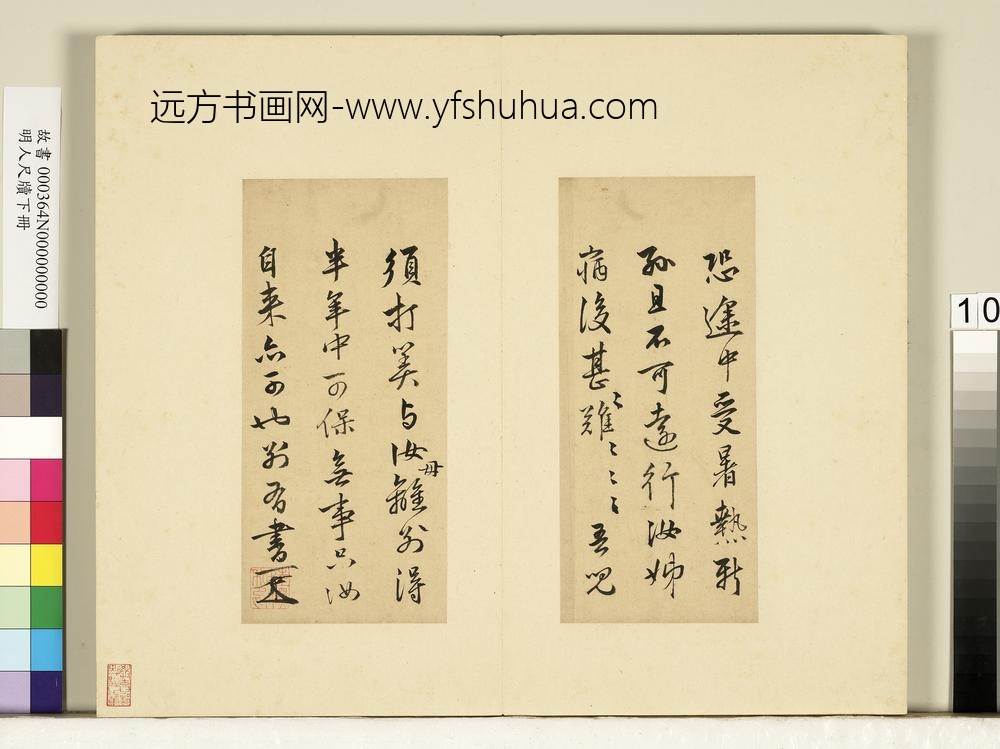 远方书画网-www.yfshuhua.com
故書 000364N000000000
明人尺牘下冊
10
恐途中受暑熱新
孫且不可遠行汝姊
病後甚〻難〻〻〻吾兒
須打美与汝母離別得
半年中可保無事只汝
自来亦可也別有書